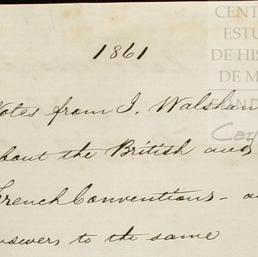 1861
Notes from J. Walsham
about the British and
French Conventions - a
nswers to the same
CENT
ESTU
DE HIS
DE M
FUND
Car